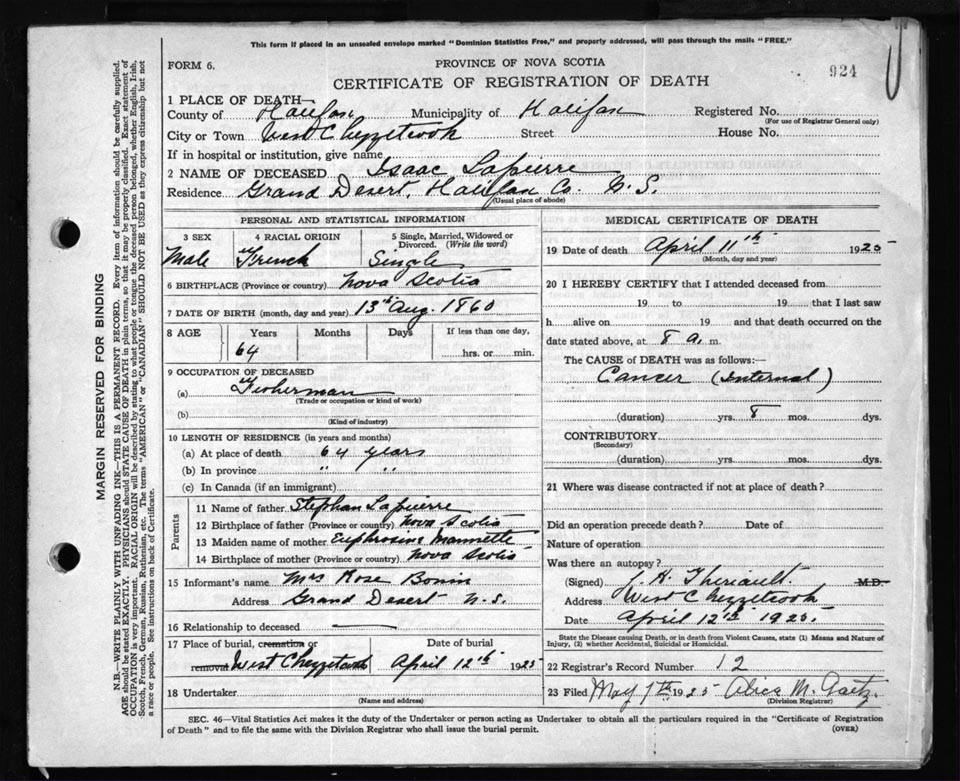 This form if placed in an unsealed envelope marked "Dominion Statistics Free," and properly addressed, will pass through the mails "FREE."
FORM 6.
PROVINCE OF NOVA SCOTIA
924
CERTIFICATE OF REGISTRATION OF DEATH
1 PLACE OF DEATH—
County of Halifax Municipality of Halifax Registered No.
(For use of Registrar General only)
City or Town West Chezzetcook Street House No.
If in hospital or institution, give name
2 NAME OF DECEASED Isaac Lapierre
Residence Grand Desert, Halifax Co. N.S.
(Usual place of abode)
PERSONAL AND STATISTICAL INFORMATION
3 SEX 4 RACIAL ORIGIN 5 Single, Married, Widowed or Divorced. (Write the word)
Male French Single
6 BIRTHPLACE (Province or country) Nova Scotia
7 DATE OF BIRTH (month, day and year) 13th Aug. 1860
8 AGE Years Months Days If less than one day,
64 hrs. or min.
9 OCCUPATION OF DECEASED
(a) Fisherman
(Trade or occupation or kind of work)
(b)
(Kind of industry)
10 LENGTH OF RESIDENCE (in years and months)
(a) At place of death 64 years
(b) In province " "
(c) In Canada (if an immigrant)
Parents
11 Name of father Stephan Lapierre
12 Birthplace of father (Province or country) Nova Scotia
13 Maiden name of mother Euphrosine Mannette
14 Birthplace of mother (Province or country) Nova Scotia
15 Informant's name Mrs Rose Bonin
Address Grand Desert N.S.
16 Relationship to deceased —
17 Place of burial, cremation or removal Date of burial
West Chezzetcook April 12th 1925
18 Undertaker
(Name and address)
MEDICAL CERTIFICATE OF DEATH
19 Date of death April 11th 1925
(Month, day and year)
20 I HEREBY CERTIFY that I attended deceased from
19 to 19 that I last saw
h alive on 19 and that death occurred on the
date stated above, at 8 a. m.
The CAUSE of DEATH was as follows:—
Cancer (Internal)
(duration) yrs. 8 mos. dys.
CONTRIBUTORY
(Secondary)
(duration) yrs. mos. dys.
21 Where was disease contracted if not at place of death?
Did an operation precede death? Date of
Nature of operation
Was there an autopsy?
(Signed) J. H. Theriault. M.D.
Address West Chezzetcook
Date April 12th 1925
State the Disease causing Death, or in death from Violent Causes, state (1) Means and Nature of
Injury, (2) whether Accidental, Suicidal or Homicidal.
22 Registrar's Record Number 12
23 Filed May 7th 1925 Alice M. Gaetz.
(Division Registrar)
SEC. 46—Vital Statistics Act makes it the duty of the Undertaker or person acting as Undertaker to obtain all the particulars required in the "Certificate of Registration
of Death" and to file the same with the Division Registrar who shall issue the burial permit.
(OVER)
MARGIN RESERVED FOR BINDING
N.B.—WRITE PLAINLY WITH UNFADING INK—THIS IS A PERMANENT RECORD. Every item of information should be carefully supplied.
AGE should be stated EXACTLY. PHYSICIANS should STATE CAUSE OF DEATH in plain terms, so that it may be properly classified. Exact statement of
OCCUPATION is very important. RACIAL ORIGIN will be described by stating to what people or tongue the deceased person belonged, whether English, Irish,
Scotch, French, German, Russian, Ruthenian, etc. The terms "AMERICAN" or "CANADIAN" SHOULD NOT BE USED as they express citizenship but not
a race or people. See instructions on back of Certificate.